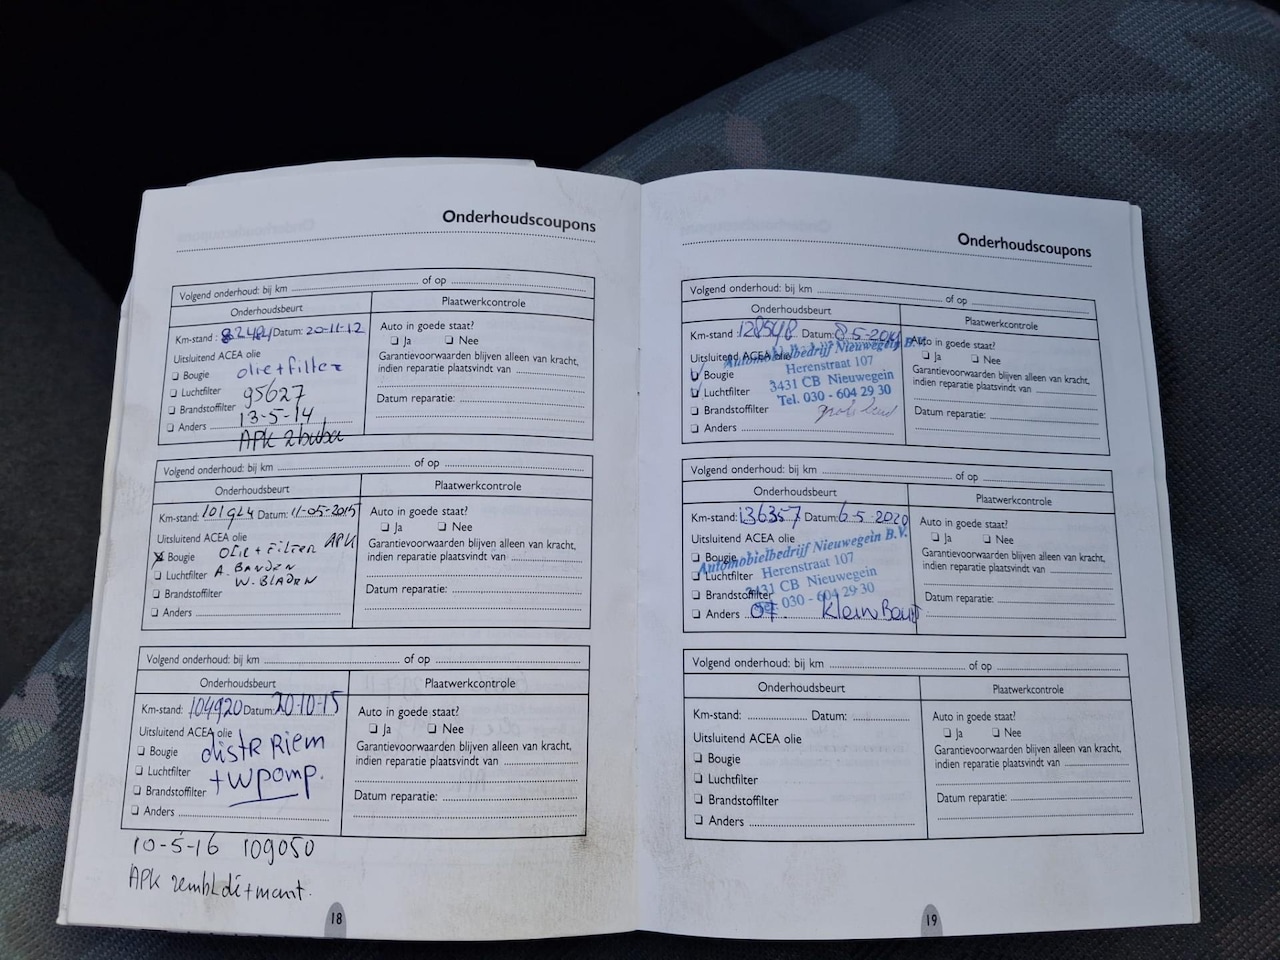 Onderhoudscoupons
Volgend onderhoud: bij km ........ of op ........
Onderhoudsbeurt
Plaatwerkcontrole
Km-stand: 82484 Datum: 20-11-12
Uitsluitend ACEA olie
❏ Bougie olie+filter
❏ Luchtfilter 95627
❏ Brandstoffilter 13-5-14
❏ Anders APK
Auto in goede staat?
❏ Ja ❏ Nee
Garantievoorwaarden blijven alleen van kracht,
indien reparatie plaatsvindt van ........
Datum reparatie: ........
Volgend onderhoud: bij km ........ of op ........
Onderhoudsbeurt
Plaatwerkcontrole
Km-stand: 101924 Datum: 11-05-2015
Uitsluitend ACEA olie
❏ Bougie olie + Filter APK
❏ Luchtfilter A. BANDEN
W. BLADEN
❏ Brandstoffilter
❏ Anders ........
Auto in goede staat?
❏ Ja ❏ Nee
Garantievoorwaarden blijven alleen van kracht,
indien reparatie plaatsvindt van ........
Datum reparatie: ........
Volgend onderhoud: bij km ........ of op ........
Onderhoudsbeurt
Plaatwerkcontrole
Km-stand: 104920 Datum: 20-10-15
Uitsluitend ACEA olie
❏ Bougie distR Riem
❏ Luchtfilter + Wpomp.
❏ Brandstoffilter
❏ Anders ........
Auto in goede staat?
❏ Ja ❏ Nee
Garantievoorwaarden blijven alleen van kracht,
indien reparatie plaatsvindt van ........
Datum reparatie: ........
10-5-16 109050
APK
18
Onderhoudscoupons
Volgend onderhoud: bij km ........ of op ........
Onderhoudsbeurt
Plaatwerkcontrole
Km-stand: 128548 Datum: 8-5-
Uitsluitend ACEA olie
❏ Bougie
❏ Luchtfilter
❏ Brandstoffilter
❏ Anders ........
Automobielbedrijf Nieuwegein B.V.
Herenstraat 107
3431 CB Nieuwegein
Tel. 030 - 604 29 30
grote beurt
Auto in goede staat?
❏ Ja ❏ Nee
Garantievoorwaarden blijven alleen van kracht,
indien reparatie plaatsvindt van ........
Datum reparatie: ........
Volgend onderhoud: bij km ........ of op ........
Onderhoudsbeurt
Plaatwerkcontrole
Km-stand: 136357 Datum: 6-5-2020
Uitsluitend ACEA olie
❏ Bougie
❏ Luchtfilter
❏ Brandstoffilter
❏ Anders Klein Beurt
Automobielbedrijf Nieuwegein B.V.
Herenstraat 107
3431 CB Nieuwegein
Tel. 030 - 604 29 30
Auto in goede staat?
❏ Ja ❏ Nee
Garantievoorwaarden blijven alleen van kracht,
indien reparatie plaatsvindt van ........
Datum reparatie: ........
Volgend onderhoud: bij km ........ of op ........
Onderhoudsbeurt
Plaatwerkcontrole
Km-stand: ........ Datum: ........
Uitsluitend ACEA olie
❏ Bougie
❏ Luchtfilter
❏ Brandstoffilter
❏ Anders ........
Auto in goede staat?
❏ Ja ❏ Nee
Garantievoorwaarden blijven alleen van kracht,
indien reparatie plaatsvindt van ........
Datum reparatie: ........
19